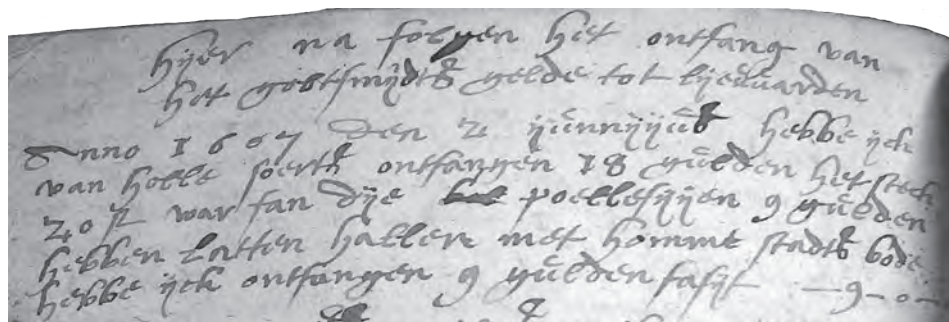 hijer na folgen het ontfang van
het goltsmijdts gelde tot lijeuwarden
Anno 1607 den 2 ijunnijus hebbe ijck
van holle soerts ontfangen 18 gulden het stech
20 st war fan dije poellesijen 9 gulden
hebben latten hallen met homme stadts bode
hebbe ijck ontfangen 9 gulden fasijt —9-0-